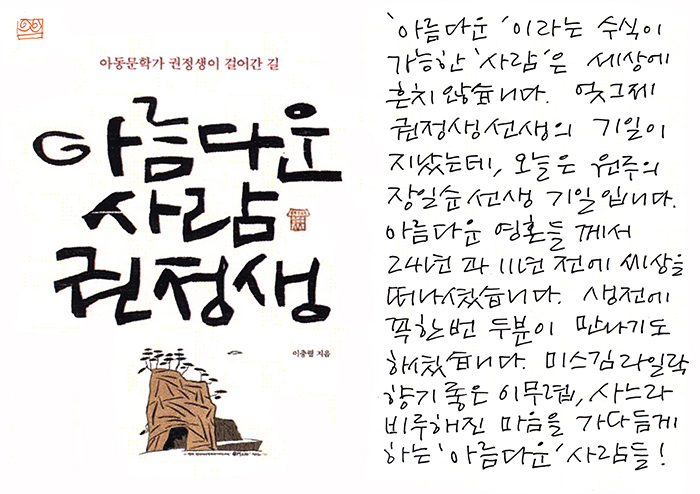 아동문학가 권정생이 걸어간 길
아름다운
사람
권정생
이충렬 지음
'아름다운' 이라는 수식이
가능한 '사람'은 세상에
흔치 않습니다. 엊그제
권정생선생의 기일이
지났는데, 오늘은 원주의
장일순선생 기일입니다.
아름다운 영혼들께서
24년과 11년 전에 세상을
떠나셨습니다. 생전에
꼭한번 두분이 만나기도
하셨습니다. 미스김라일락
향기 좋은 이무렵, 사느라
비루해진 마음을 가다듬게
하는 '아름다운' 사람들!